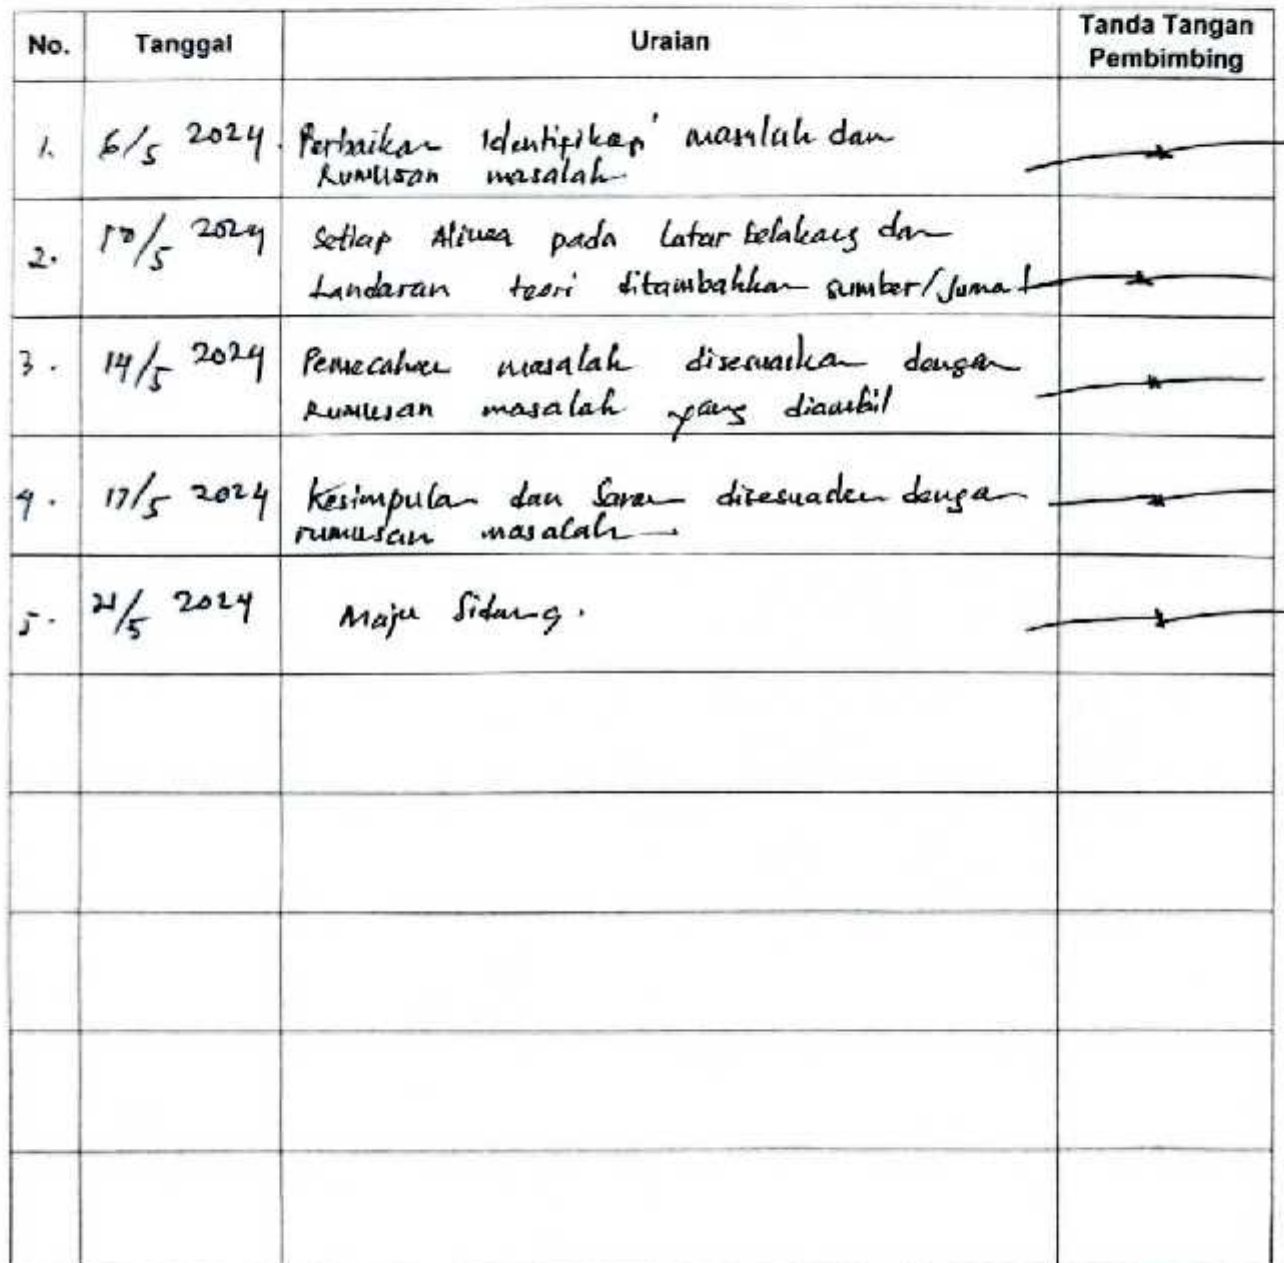 No. Tanggal Uraian Tanda Tangan
Pembimbing
1. 6/5 2024. Perbaikan Identifikasi masalah dan
Rumusan masalah
2. 10/5 2024 Setiap Alinea pada Latar belakang dan
Landasan teori ditambahkan sumber/Jurnal
3. 14/5 2024 Pemecahan masalah disesuaikan dengan
Rumusan masalah yang diambil
4. 17/5 2024 Kesimpulan dan Saran disesuaikan dengan
rumusan masalah
5. 21/5 2024 Maju Sidang.